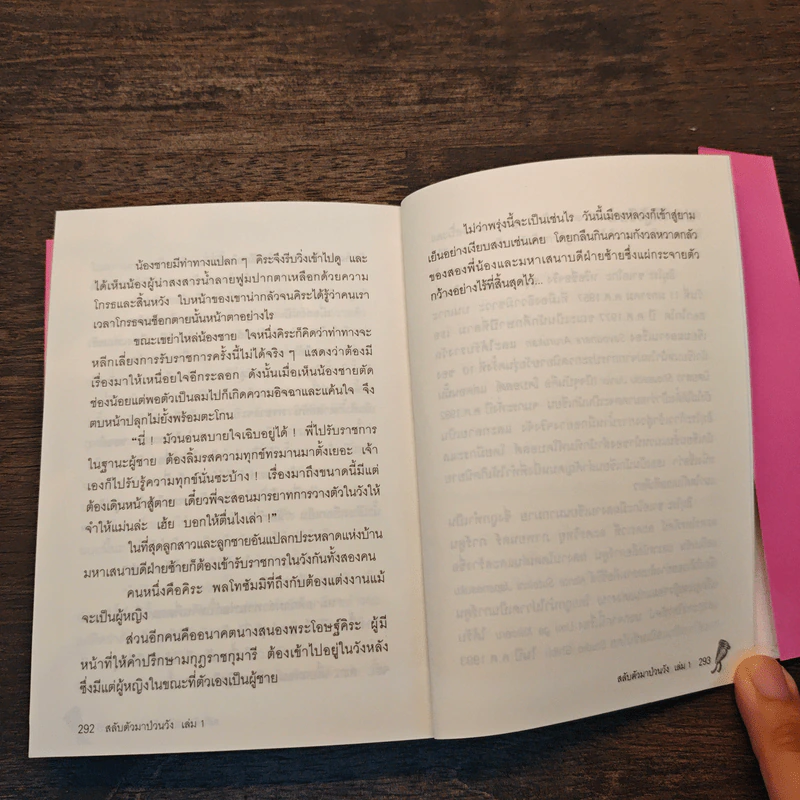 น้องชายมีท่าทางแปลก ๆ คิระจึงรีบวิ่งเข้าไปดู และ
ได้เห็นน้องผู้น่าสงสารน้ำลายฟูมปากตาเหลือกด้วยความ
โกรธและสิ้นหวัง ใบหน้าของเขาน่ากลัวจนคิระได้รู้ว่าคนเรา
เวลาโกรธจนช็อกตายนั้นหน้าตาอย่างไร
ขณะเขย่าไหล่น้องชาย ใจหนึ่งคิระก็คิดว่าท่าทางจะ
หลีกเลี่ยงการรับราชการครั้งนี้ไม่ได้จริง ๆ แสดงว่าต้องมี
เรื่องมาให้เหนื่อยใจอีกระลอก ดังนั้นเมื่อเห็นน้องชายตัด
ช่องน้อยแต่พอตัวเป็นลมไปก็เกิดความอิจฉาและแค้นใจ จึง
ตบหน้าปลุกไม่ยั้งพร้อมตะโกน
“นี่ ! มัวนอนสบายใจเฉิบอยู่ได้ ! พี่ไปรับราชการ
ในฐานะผู้ชาย ต้องลิ้มรสความทุกข์ทรมานมาตั้งเยอะ เจ้า
เองก็ไปรับรู้ความทุกข์นั่นซะบ้าง ! เรื่องมาถึงขนาดนี้มีแต่
ต้องเดินหน้าสู้ตาย เดี๋ยวพี่จะสอนมารยาทการวางตัวในวังให้
จำให้แม่นล่ะ เฮ้ย บอกให้ตื่นไงเล่า !”
ในที่สุดลูกสาวและลูกชายอันแปลกประหลาดแห่งบ้าน
มหาเสนาบดีฝ่ายซ้ายก็ต้องเข้ารับราชการในวังกันทั้งสองคน
คนหนึ่งคือคิระ พลโทซัมมิที่ถึงกับต้องแต่งงานแม้
จะเป็นผู้หญิง
ส่วนอีกคนคืออนาคตนางสนองพระโอษฐ์คิระ ผู้มี
หน้าที่ให้คำปรึกษามกุฎราชกุมารี ต้องเข้าไปอยู่ในวังหลัง
ซึ่งมีแต่ผู้หญิงในขณะที่ตัวเองเป็นผู้ชาย
292 สลับตัวมาป่วนวัง เล่ม 1
ไม่ว่าพรุ่งนี้จะเป็นเช่นไร วันนี้เมืองหลวงก็เข้าสู่ยาม
เย็นอย่างเงียบสงบเช่นเคย โดยกลืนกินความกังวลหวาดกลัว
ของสองพี่น้องและมหาเสนาบดีฝ่ายซ้ายซึ่งแผ่กระจายตัว
กว้างอย่างไร้ที่สิ้นสุดไว้...
สลับตัวมาป่วนวัง เล่ม 1 293